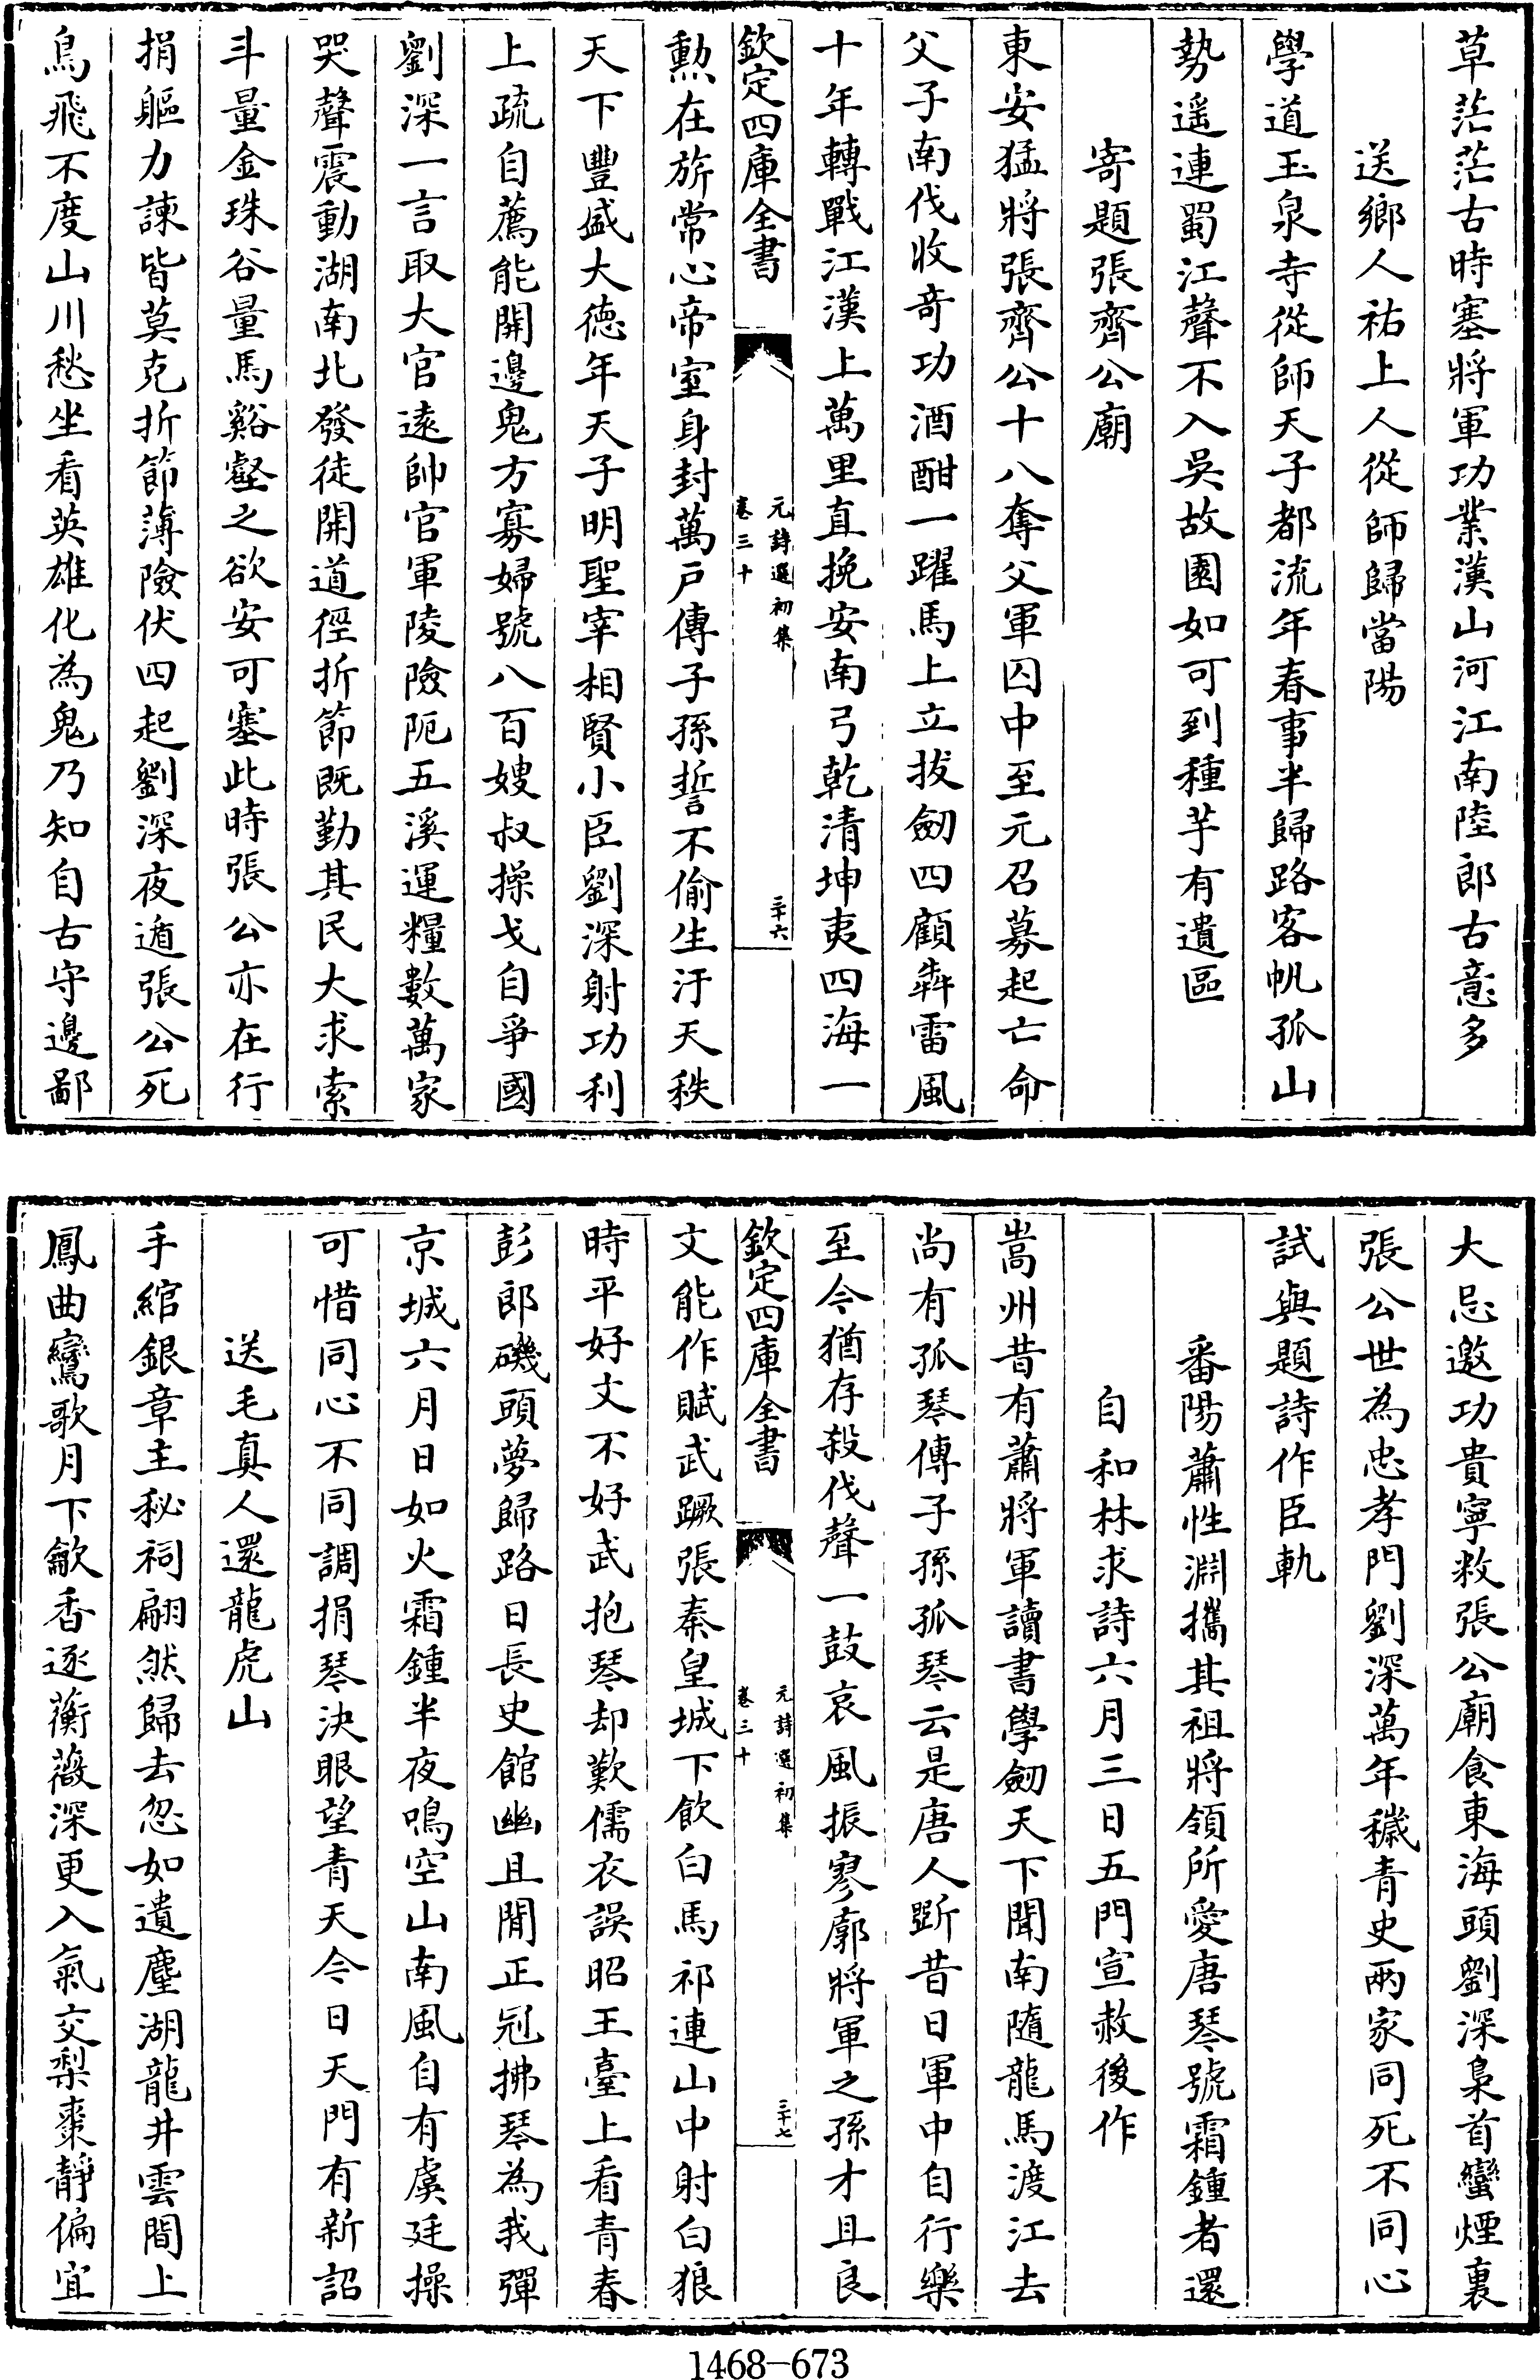 草茫茫古時塞將軍功業漢山河江南陸郎古意多
送鄉人祐上人從師歸當陽
學道玉泉寺從師天子都流年春事半歸路客帆孤山
勢遥連蜀江聲不入吳故園如可到種芋有遺區
寄題張齊公廟
東安猛將張齊公十八奪父軍囚中至元召募起亡命
父子南伐收奇功酒酣一躍馬上立拔劒四顧犇雷風
十年轉戰江漢上萬里直挽安南弓乾清坤夷四海一
欽定四庫全書
元詩選初集
卷三十
三十六
勲在旂常心帝室身封萬戸傳子孫誓不偷生汙天秩
天下豐盛大德年天子明聖宰相賢小臣劉深射功利
上疏自薦能開邊鬼方寡婦號八百嫂叔操戈自爭國
劉深一言取大官逺帥官軍陵險阨五溪運糧數萬家
哭聲震動湖南北發徒開道徑折節既勤其民大求索
斗量金珠谷量馬谿壑之欲安可塞此時張公亦在行
捐軀力諫皆莫克折節薄險伏四起劉深夜遁張公死
鳥飛不度山川愁坐看英雄化為鬼乃知自古守邊鄙
大忌邀功貴寧救張公廟食東海頭劉深梟首蠻煙裏
張公世為忠孝門劉深萬年穢青史兩家同死不同心
試與題詩作臣軌
番陽蕭性淵攜其祖將領所愛唐琴號霜鍾者還
自和林求詩六月三日五門宣赦後作
嵩州昔有蕭將軍讀書學劒天下聞南隨龍馬渡江去
尚有孤琴傳子孫孤琴云是唐人斲昔日軍中自行樂
至今猶存殺伐聲一鼓哀風振寥廓將軍之孫才且良
欽定四庫全書
元詩選初集
卷三十
三十七
文能作賦武蹶張秦皇城下飲白馬祁連山中射白狼
時平好文不好武抱琴却歎儒衣誤昭王臺上看青春
彭郎磯頭夢歸路日長史館幽且閒正冠拂琴為我彈
京城六月日如火霜鍾半夜鳴空山南風自有虞廷操
可惜同心不同調捐琴決眼望青天今日天門有新詔
送毛真人還龍虎山
手綰銀章主秘祠翩然歸去忽如遺塵湖龍井雲間上
鳳曲鸞歌月下歈香逐蘅薇深更入氣交梨棗靜偏宜
1468-673